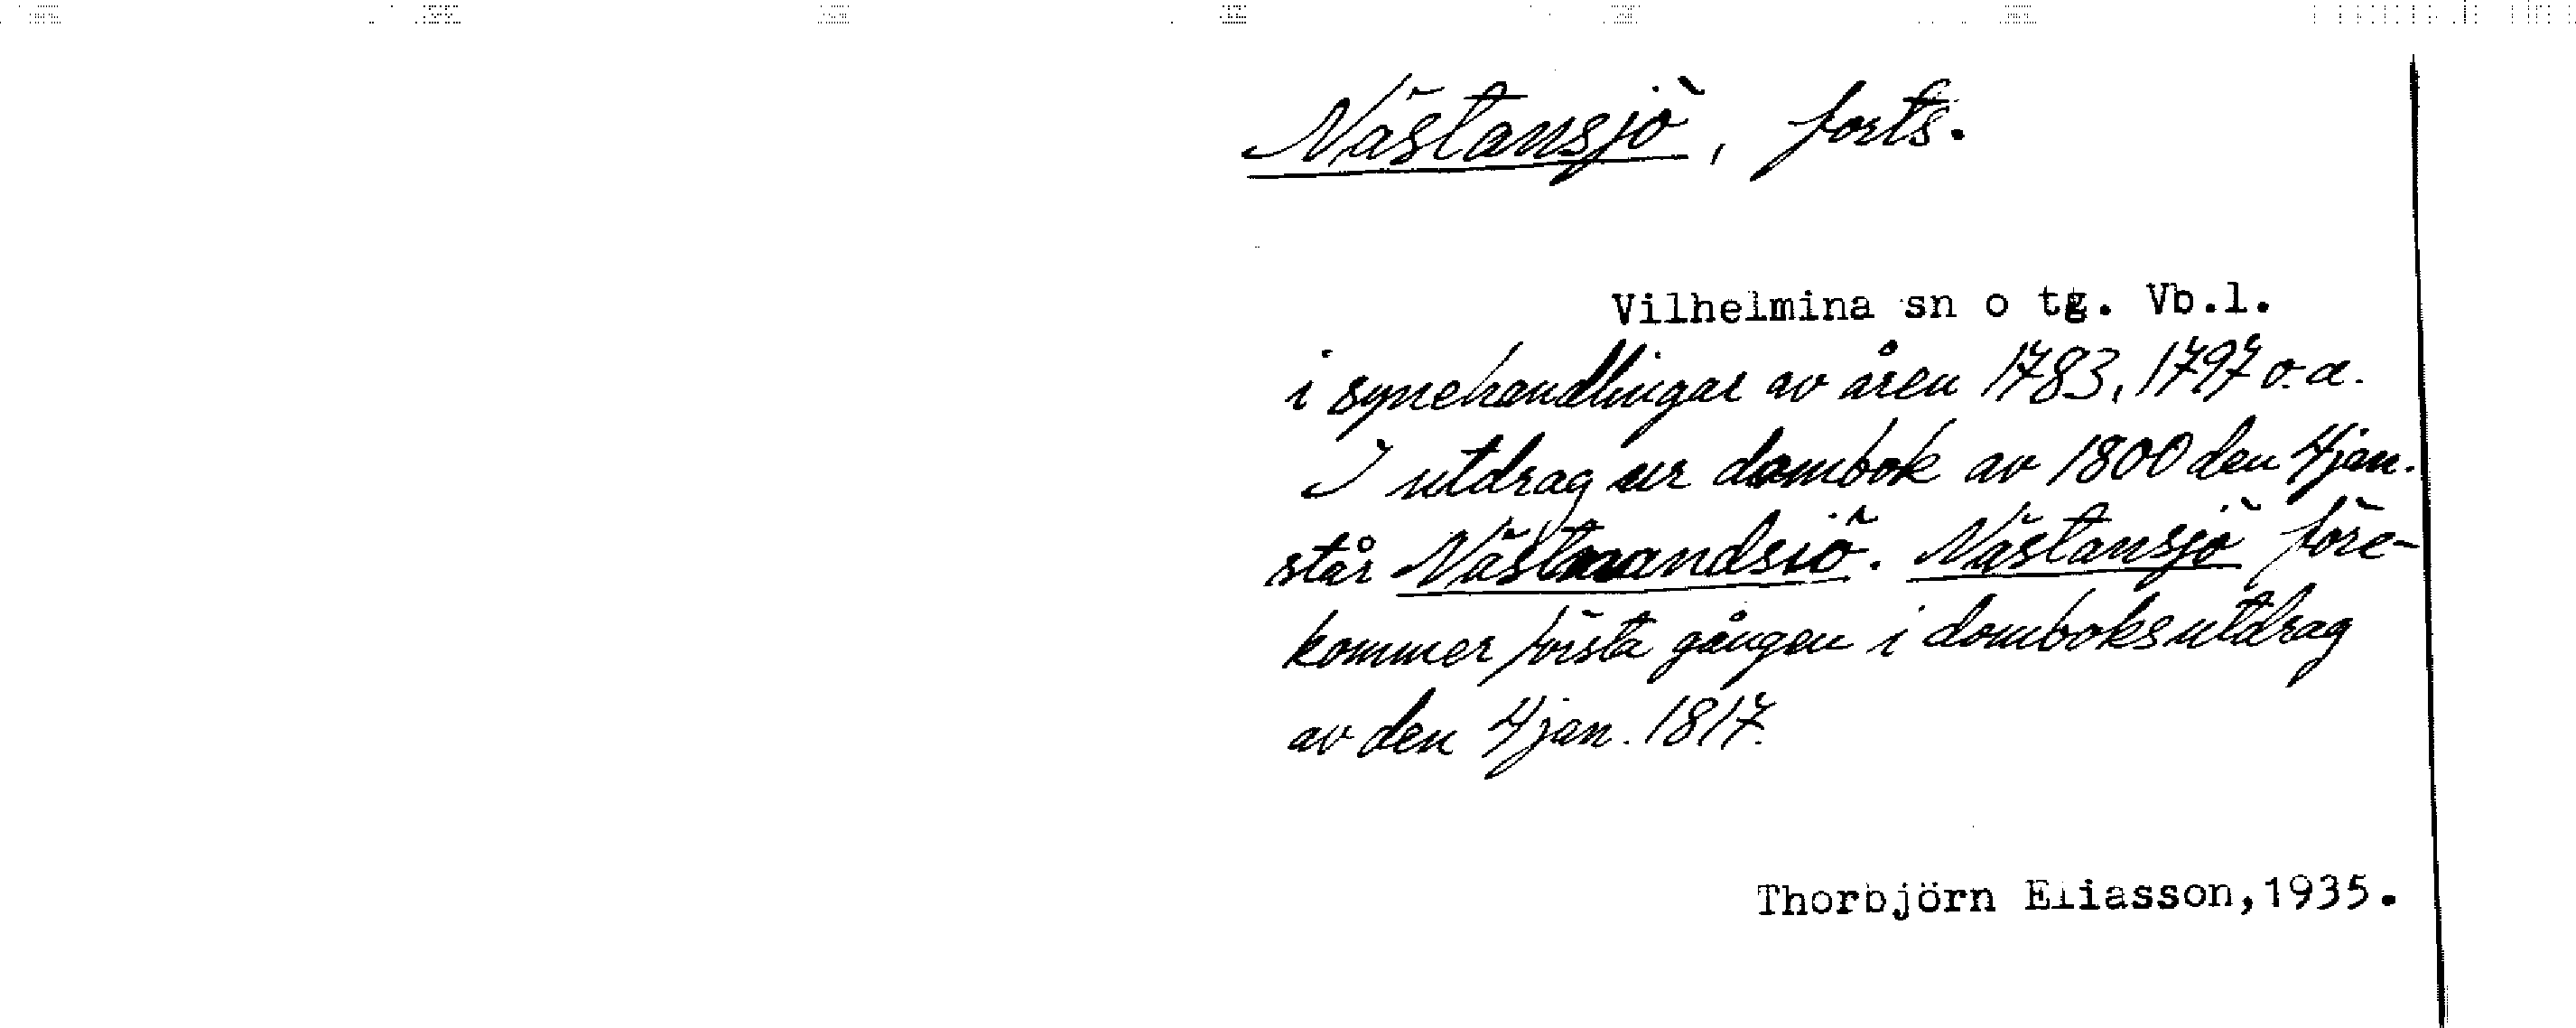 Nästansjö, forts.
Vilhelmina sn o tg. Vb.l.
i synehandlingar av åren 1783, 1797 o. a.
I utdrag ur dombok av 1800 den 4 jan.
står Nästmandsiö. Nästansjö före-
kommer första gången i domboksutdrag
av den 4 jan. 1817.
Thorbjörn Eliasson, 1935.